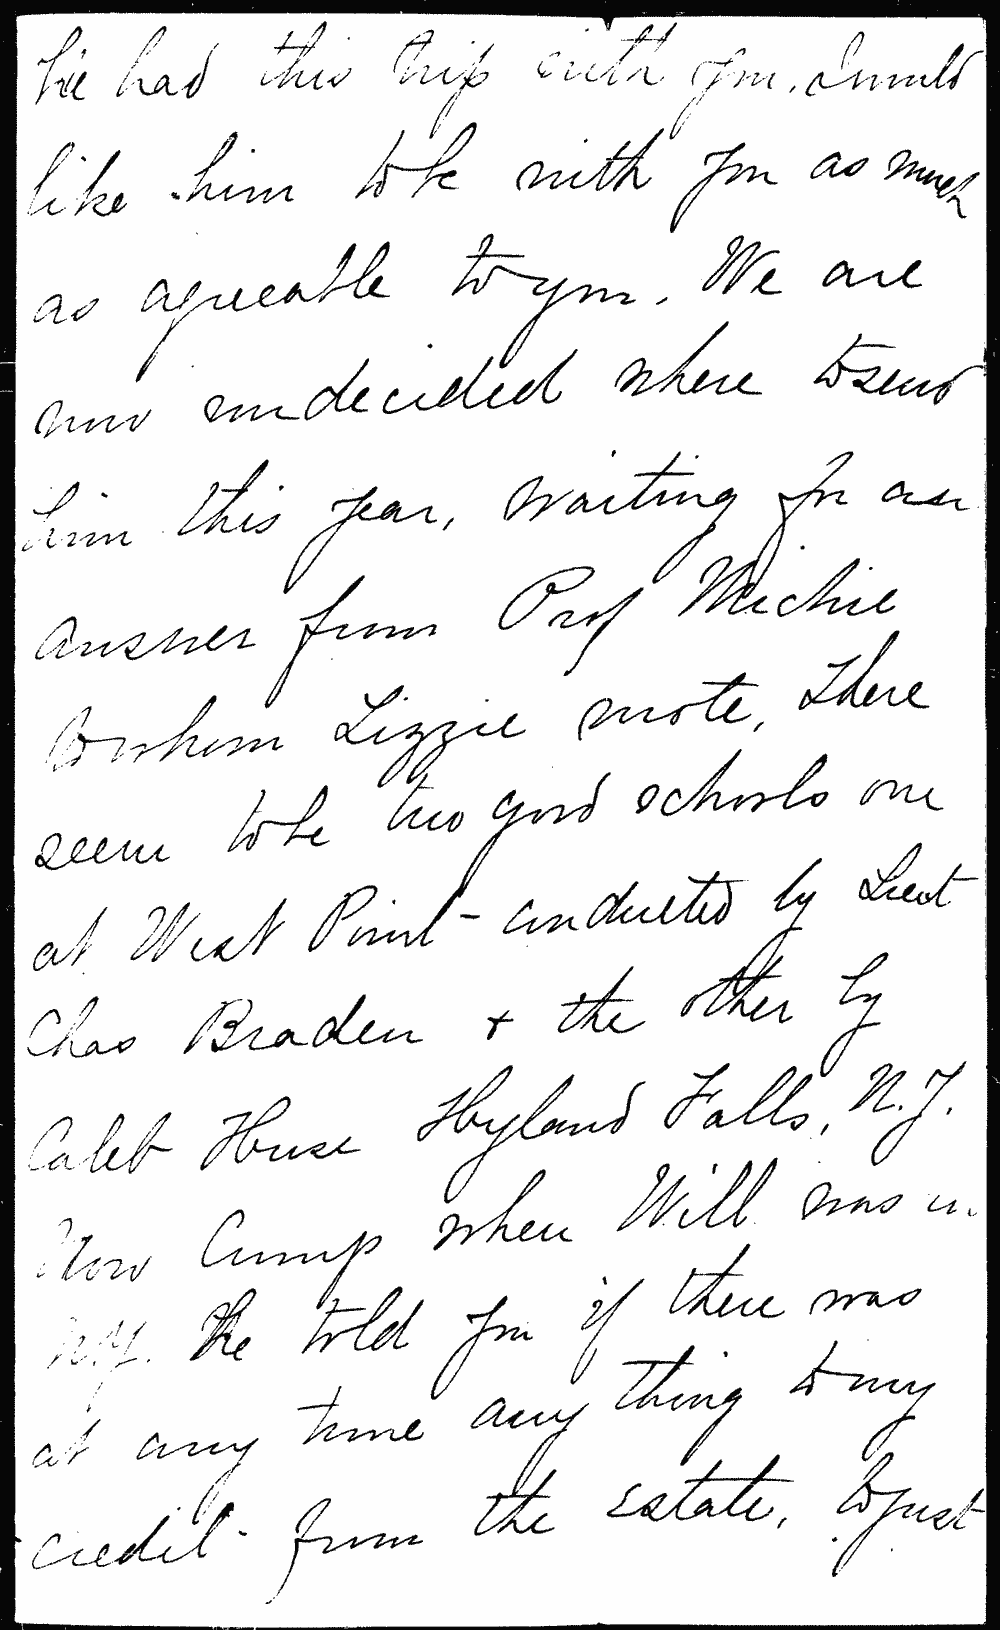 he had this trip with you. I would
like him to be with you as much
as agreeable to you. We are
now undecided where to send
him this year, waiting for an
answer from Prof Michie
to whom Lizzie wrote, There
seem to be two good schools one
at West Point - conducted by Lieut
Chas Braden + the other by
Caleb Huse Hyland Falls, N.Y.
Now Cump when Will was in
N.Y. he told you if there was
at any time any thing to my
credit from the estate, to just